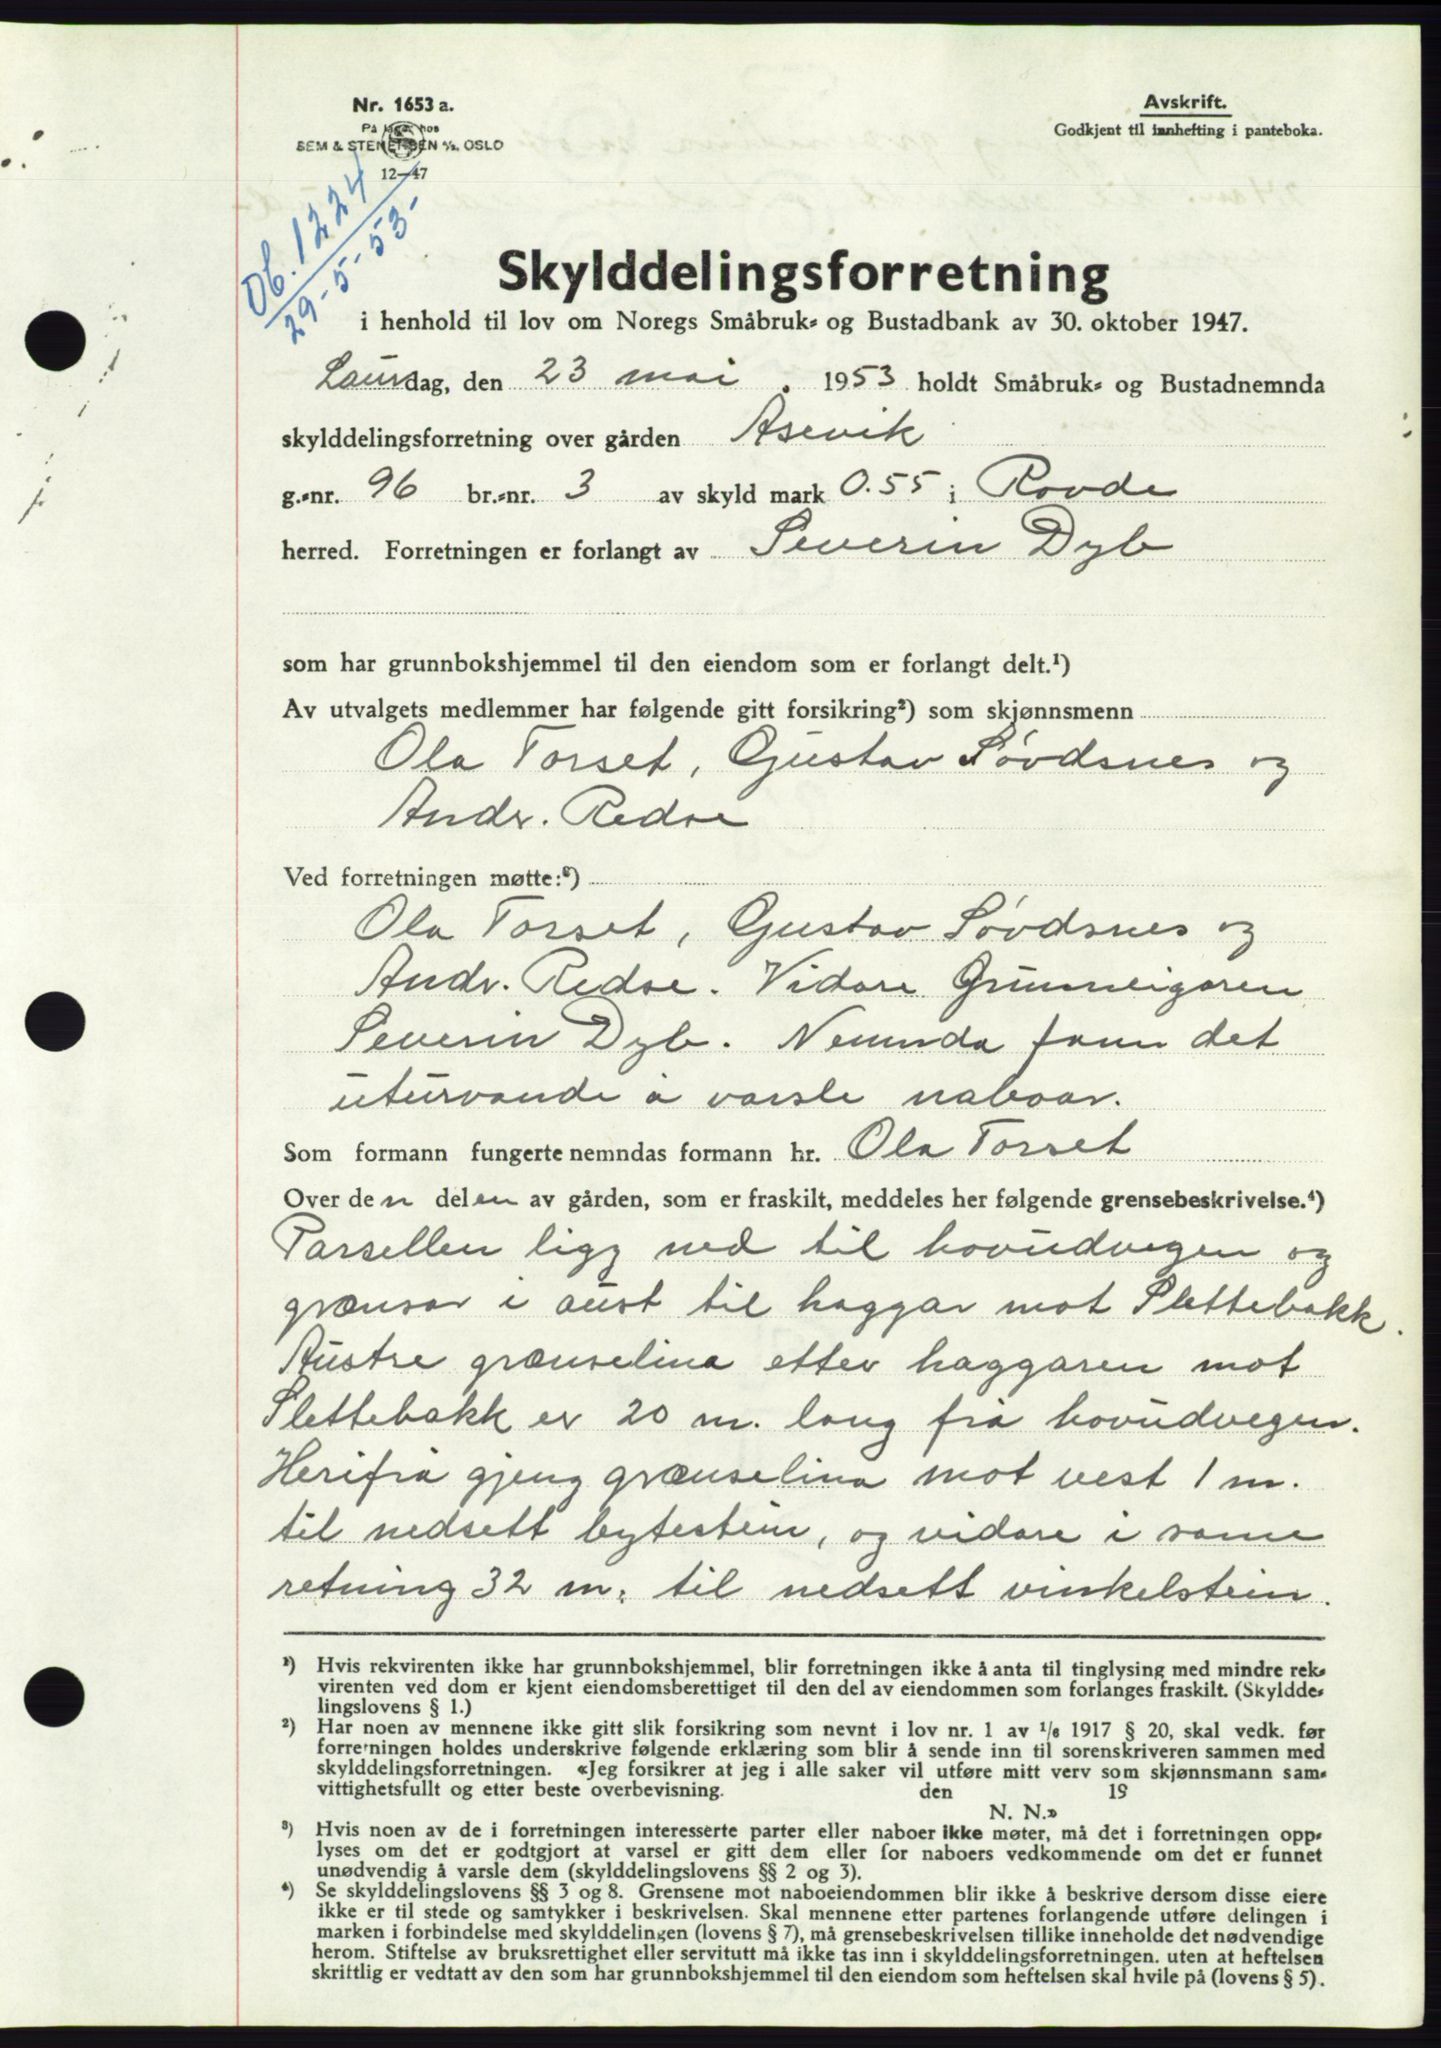 Nr. 1653 a.
På lager hos
SEM & STENERSEN A/S. OSLO
12—47
Avskrift.
Godkjent til innhefting i panteboka.
Db. 1224
29-5-53-
Skylddelingsforretning
i henhold til lov om Noregs Småbruk- og Bustadbank av 30. oktober 1947.
Laurdag, den 23 mai . 1953 holdt Småbruk- og Bustadnemnda
skylddelingsforretning over gården Åsevik
g.-nr. 96 br.-nr. 3 av skyld mark 0.55 i Rovde
herred. Forretningen er forlangt av Severin Dyb
som har grunnbokshjemmel til den eiendom som er forlangt delt.¹)
Av utvalgets medlemmer har følgende gitt forsikring²) som skjønnsmenn
Ola Torset, Gustav Søvdsnes og
Andr. Redse
Ved forretningen møtte:³)
Ola Torset, Gustav Søvdsnes og
Andr. Redse. Vidare Grunneigaren
Severin Dyb. Nemnda fann det
uturvande å varsle naboar.
Som formann fungerte nemndas formann hr. Ola Torset
Over den delen av gården, som er fraskilt, meddeles her følgende grensebeskrivelse.⁴)
Parsellen ligg ned til hovudvegen og
grænsar i aust til haggar mot Slettebakk.
Austre grænselina etter haggaren mot
Slettebakk er 20 m. lang frå hovudvegen.
Herifrå gjeng grænselina mot vest 1 m.
til nedsett bytestein, og vidare i same
retning 32 m. til nedsett vinkelstein.
¹) Hvis rekvirenten ikke har grunnbokshjemmel, blir forretningen ikke å anta til tinglysing med mindre rek-
virenten ved dom er kjent eiendomsberettiget til den del av eiendommen som forlanges fraskilt. (Skyldde-
lingslovens § 1.)
²) Har noen av mennene ikke gitt slik forsikring som nevnt i lov nr. 1 av 1/6 1917 § 20, skal vedk. før
forretningen holdes underskrive følgende erklæring som blir å sende inn til sorenskriveren sammen med
skylddelingsforretningen. «Jeg forsikrer at jeg i alle saker vil utføre mitt verv som skjønnsmann sam-
vittighetsfullt og etter beste overbevisning. den 19
N. N.»
³) Hvis noen av de i forretningen interesserte parter eller naboer ikke møter, må det i forretningen opp-
lyses om det er godtgjort at varsel er gitt dem eller for naboers vedkommende om det er funnet
unødvendig å varsle dem (skylddelingslovens §§ 2 og 3).
⁴) Se skylddelingslovens §§ 3 og 8. Grensene mot naboeiendommen blir ikke å beskrive dersom disse eiere
ikke er til stede og samtykker i beskrivelsen. Skal mennene etter partenes forlangende utføre delingen i
marken i forbindelse med skylddelingen (lovens § 7), må grensebeskrivelsen tillike inneholde det nødvendige
herom. Stiftelse av bruksrettighet eller servitutt må ikke tas inn i skylddelingsforretningen. uten at heftelsen
skriftlig er vedtatt av den som har grunnbokshjemmel til den eiendom som heftelsen skal hvile på (lovens § 5).